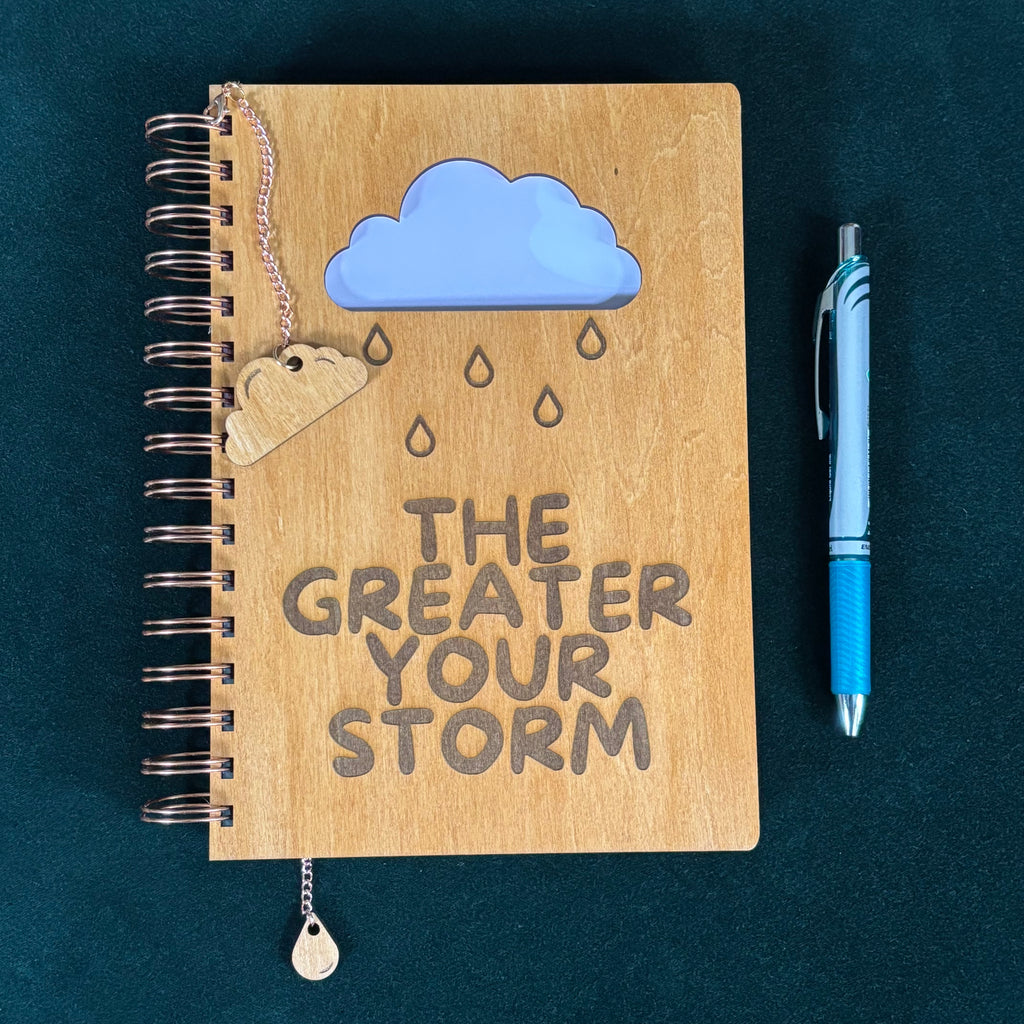 THE
GREATER
YOUR
STORM